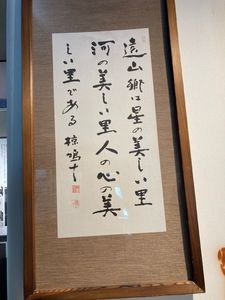 遠山郷は星の美しい里
河の美しい里人の心の美
しい里である 椋鳩十